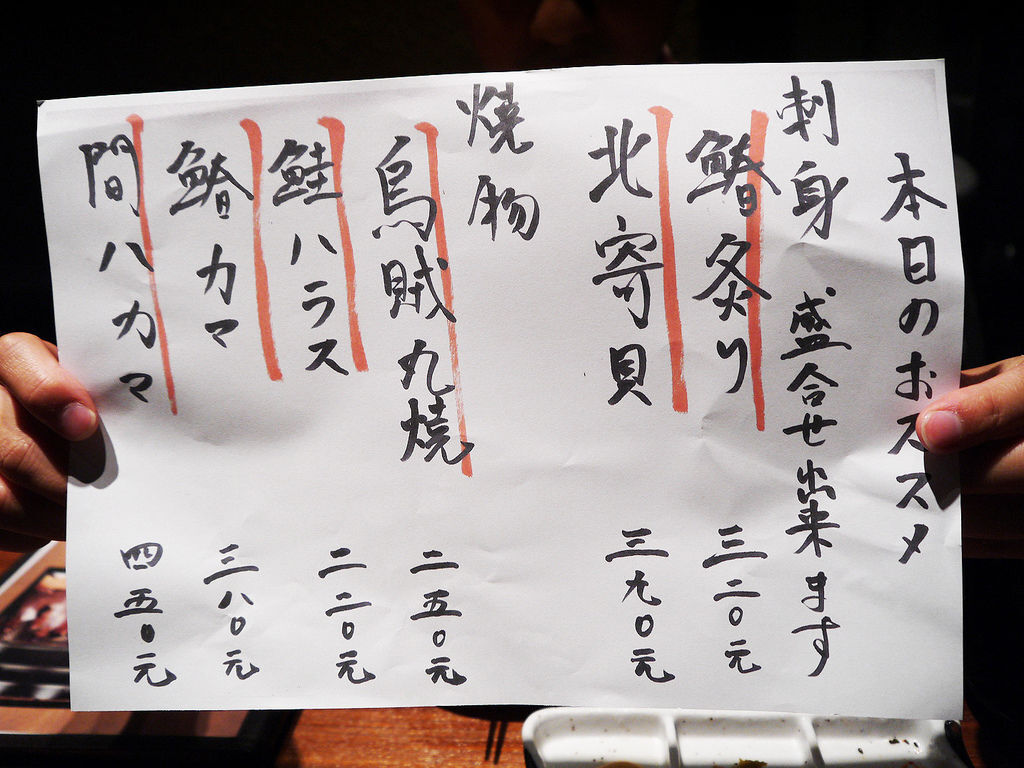 本日のおススメ
刺身 盛合せ出来ます
鰆炙り 三二〇元
北寄貝 三九〇元
焼物
烏賊丸焼 二五〇元
鮭ハラス 二二〇元
鰆カマ 三八〇元
間八カマ 四五〇元